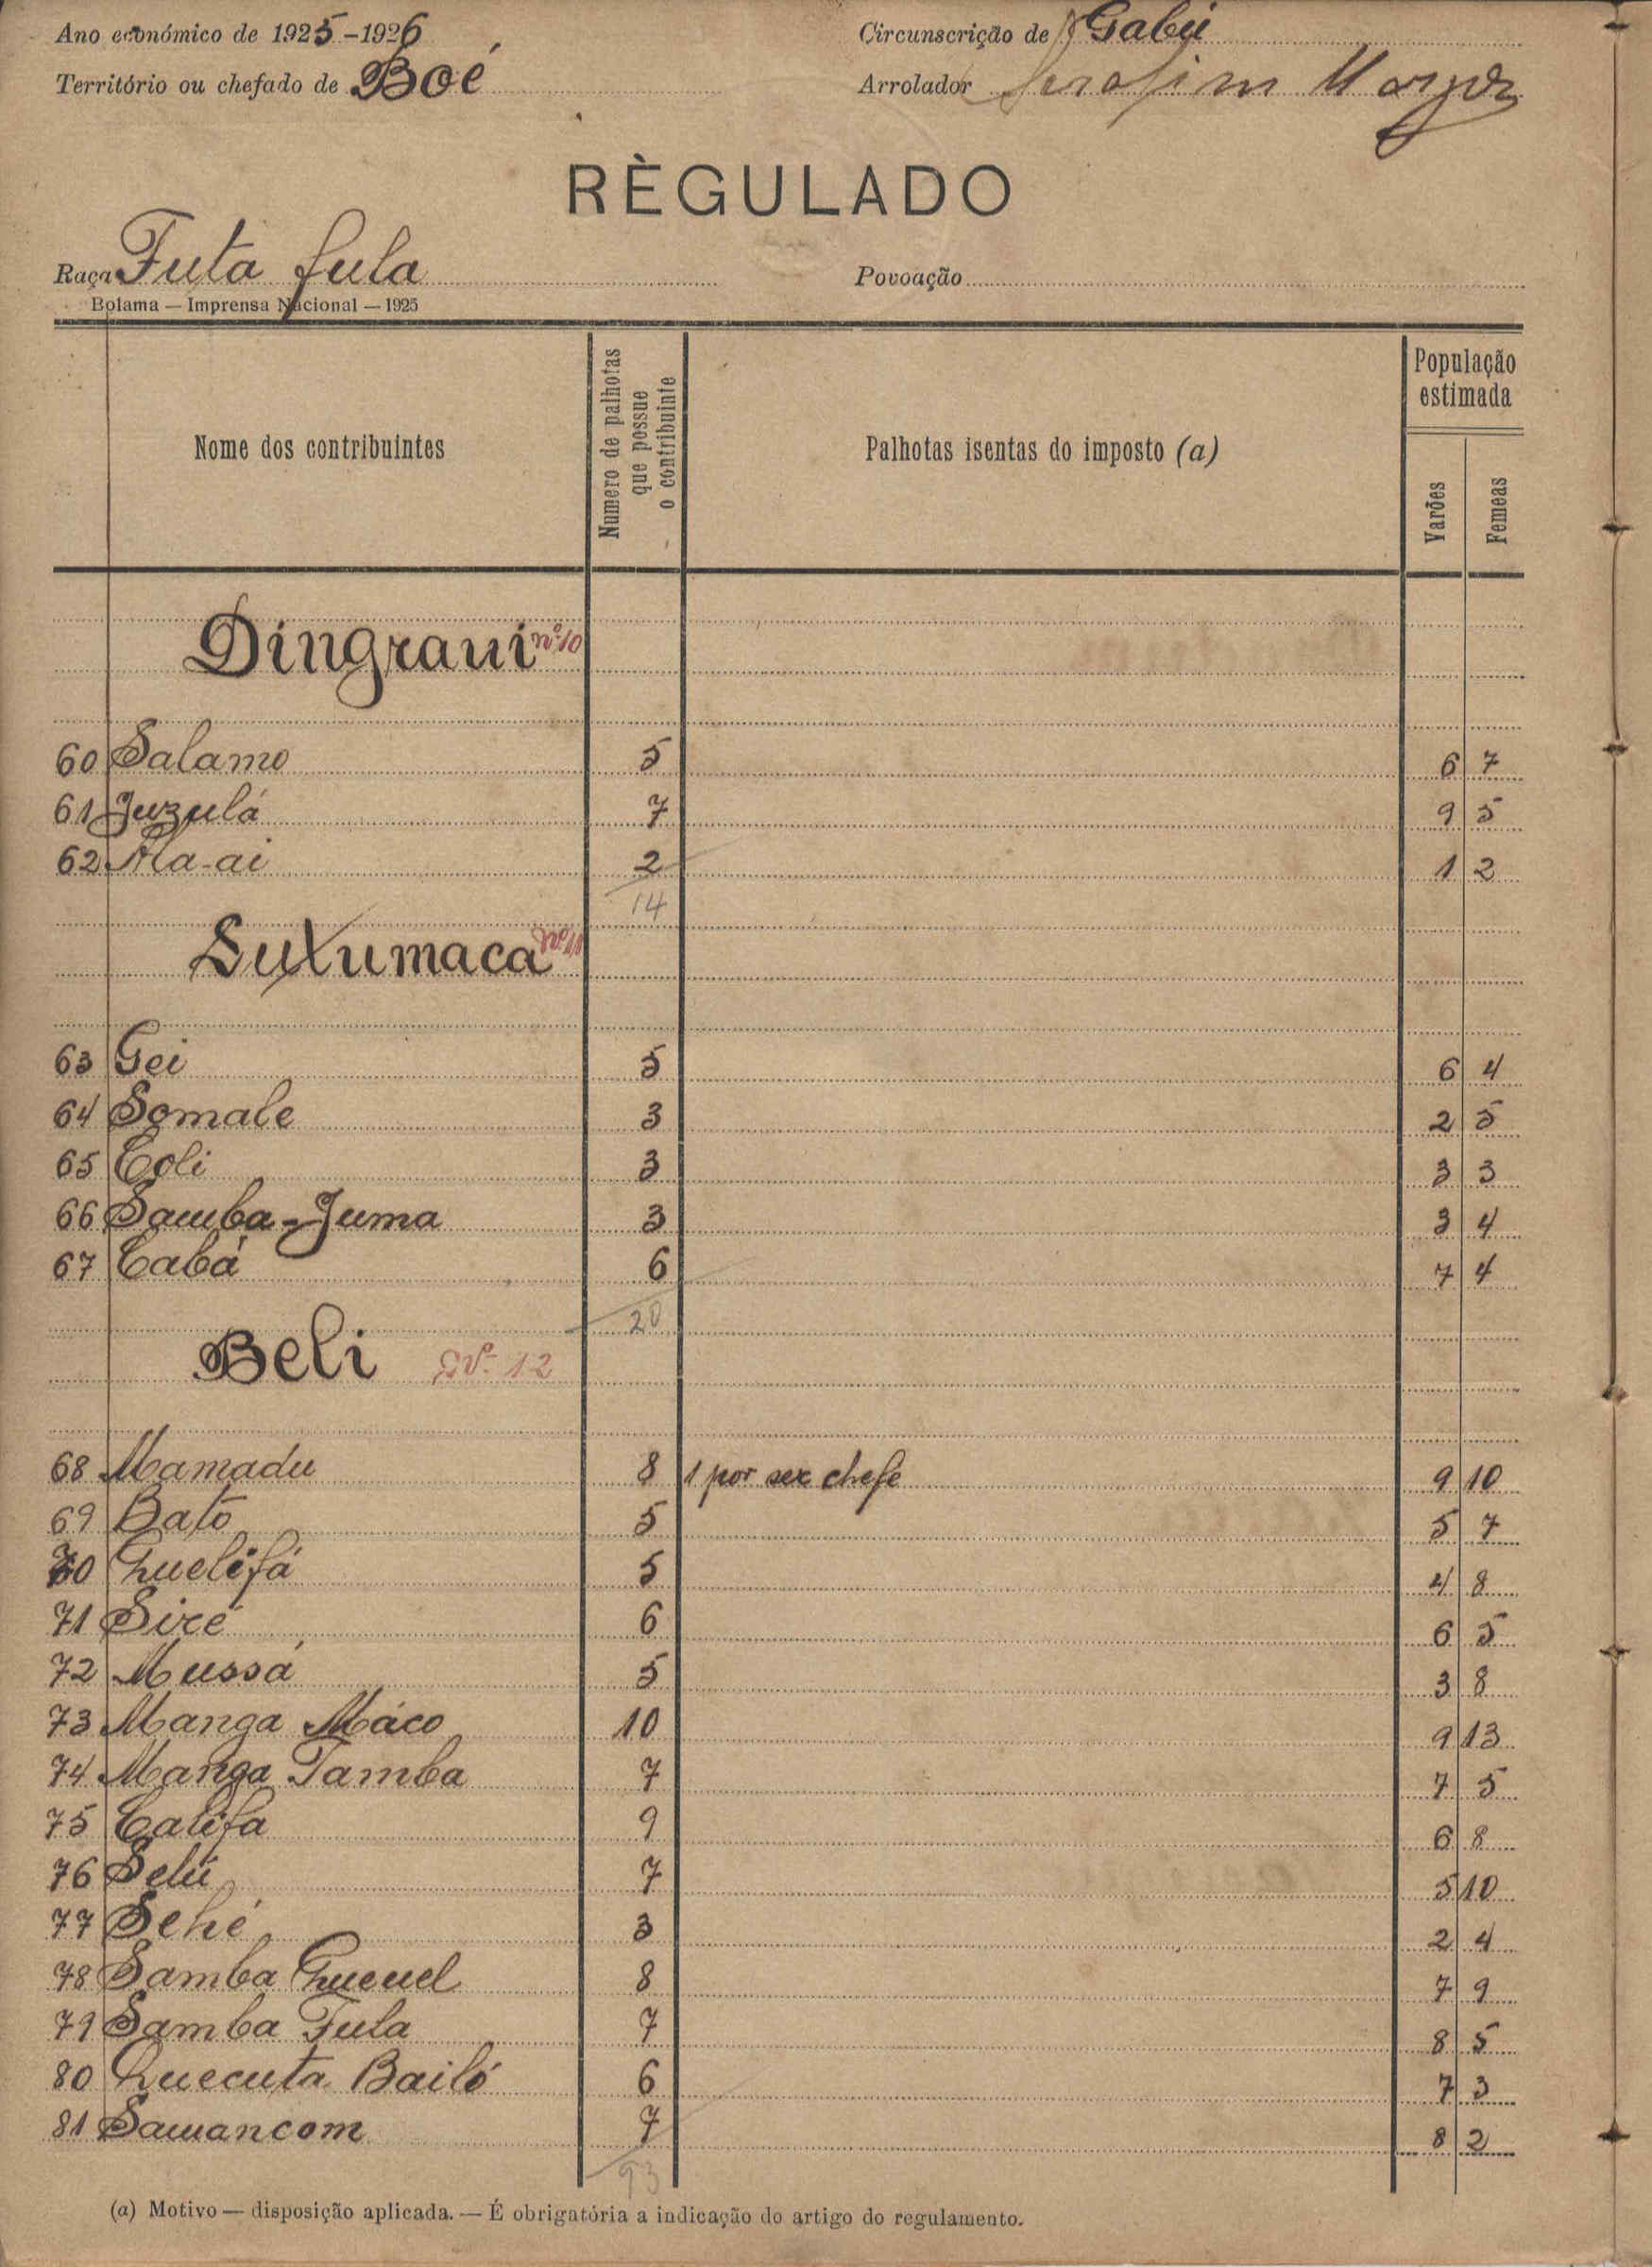 Ano económico de 1925-1926
Circunscrição de Gabú
Território ou chefado de Boé
Arrolador Serafim
RÈGULADO
Raça Futa fula
Povoação
Bolama — Imprensa Nacional — 1925
Nome dos contribuintes
Numero de palhotas
que possue
o contribuinte
Palhotas isentas do imposto (a)
População
estimada
Varões
Femeas
Dingraui nº 10
60 Salamo 5 6 7
61 Juzulá 7 9 5
62 2 1 2
14
Suxumaca Nº 11
63 Gei 5 6 4
64 Somale 3 2 5
65 Coli 3 3 3
66 Samba-Juma 3 3 4
67 Cabá 6 7 4
20
Beli Nº 12
68 Mamadu 8 1 por ser chefe 9 10
69 Bató 5 5 7
70 Quelifá 5 4 8
71 Siré 6 6 5
72 Mussá 5 3 8
73 Manga Máco 10 9 13
74 Manga Tamba 7 7 5
75 Califa 9 6 8
76 Selú 7 5 10
77 Sehé 3 2 4
78 Samba Queuel 8 7 9
79 Samba Fula 7 8 5
80 Quecuta Bailó 6 7 3
81 Sauancom 7 8 2
93
(a) Motivo — disposição aplicada. — É obrigatória a indicação do artigo do regulamento.